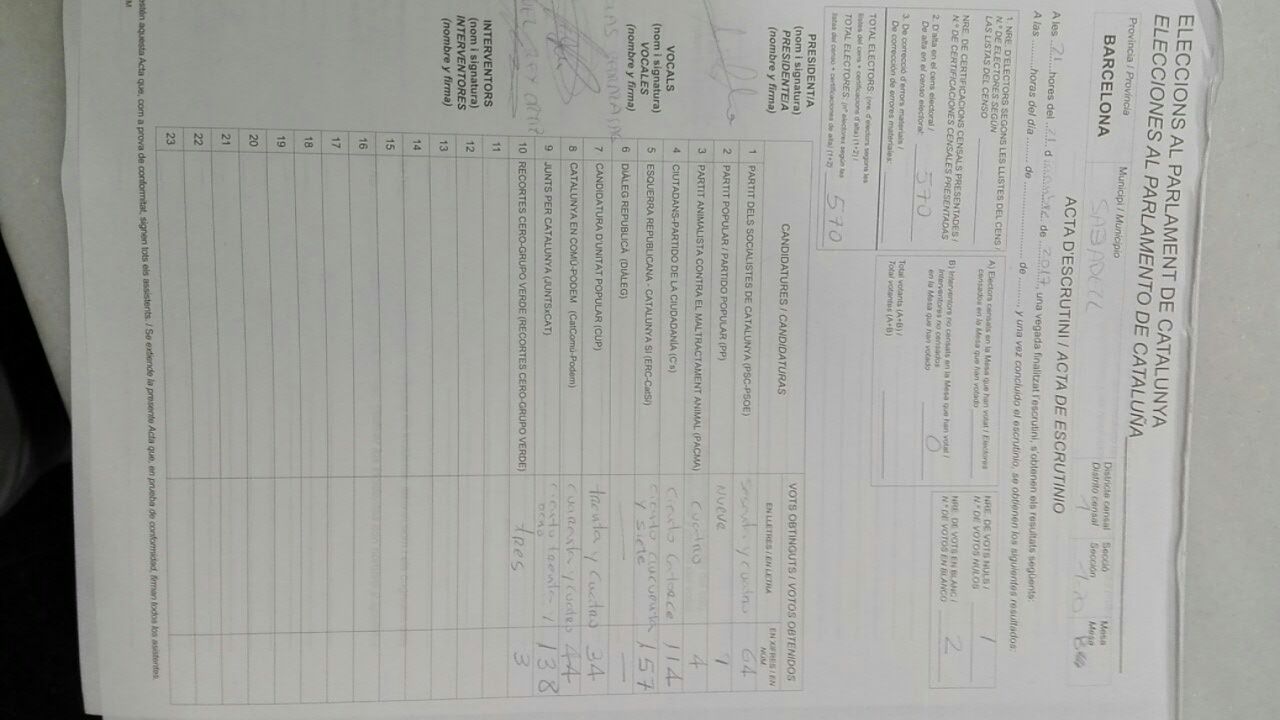 ELECCIONS AL PARLAMENT DE CATALUNYA
ELECCIONES AL PARLAMENTO DE CATALUÑA
Província / Provincia
BARCELONA
Municipi / Municipio
SABADELL
Districte censal
Distrito censal
1
Secció
Sección
Mesa
Mesa
B
ACTA D'ESCRUTINI / ACTA DE ESCRUTINIO
A les 21 hores del 21 d de 2017, una vegada finalitzat l'escrutini, s'obtenen els resultats següents:
A las horas del día de de y una vez concluido el escrutinio, se obtienen los siguientes resultados:
1. NRE. D'ELECTORS SEGONS LES LLISTES DEL CENS /
N.º DE ELECTORES SEGÚN
LAS LISTAS DEL CENSO
NRE. DE CERTIFICACIONS CENSALS PRESENTADES /
N.º DE CERTIFICACIONES CENSALES PRESENTADAS
2. D'alta en el cens electoral /
De alta en el censo electoral: 570
3. De correcció d'errors materials /
De corrección de errores materiales:
TOTAL ELECTORS: (nre. d'electors segons les
llistes del cens + certificacions d'alta) (1+2) /
TOTAL ELECTORES: (n.º electores según las
listas del censo + certificaciones de alta) (1+2) 570
A) Electors censats en la Mesa que han votat / Electores
censados en la Mesa que han votado
B) Interventors no censats en la Mesa que han votat /
Interventores no censados
en la Mesa que han votado 0
Total votants (A+B) /
Total votantes (A+B)
NRE. DE VOTS NULS /
N.º DE VOTOS NULOS 1
NRE. DE VOTS EN BLANC /
N.º DE VOTOS EN BLANCO 2
PRESIDENT/A
(nom i signatura)
PRESIDENTE/A
(nombre y firma)
VOCALS
(nom i signatura)
VOCALES
(nombre y firma)
INTERVENTORS
(nom i signatura)
INTERVENTORES
(nombre y firma)
CANDIDATURES / CANDIDATURAS
VOTS OBTINGUTS / VOTOS OBTENIDOS
EN LLETRES / EN LETRA
EN XIFRES / EN NÚM.
1 PARTIT DELS SOCIALISTES DE CATALUNYA (PSC-PSOE) sesenta y cuatro 64
2 PARTIT POPULAR / PARTIDO POPULAR (PP) Nueve 9
3 PARTIT ANIMALISTA CONTRA EL MALTRACTAMENT ANIMAL (PACMA) cuatro 4
4 CIUTADANS-PARTIDO DE LA CIUDADANÍA (C's) Ciento Catorce 114
5 ESQUERRA REPUBLICANA - CATALUNYA SÍ (ERC-CatSí) ciento cincuenta y siete 157
6 DIÀLEG REPUBLICÀ (DIÀLEG) — —
7 CANDIDATURA D'UNITAT POPULAR (CUP) treinta y cuatro 34
8 CATALUNYA EN COMÚ-PODEM (CatComú-Podem) cuarenta y cuatro 44
9 JUNTS PER CATALUNYA (JUNTSxCAT) ciento treinta y ocho 138
10 RECORTES CERO-GRUPO VERDE (RECORTES CERO-GRUPO VERDE) tres 3
11
12
13
14
15
16
17
18
19
20
21
22
23
estén aquesta Acta que, com a prova de conformitat, signen tots els assistents. / Se extiende la presente Acta que, en prueba de conformidad, firman todos los asistentes.